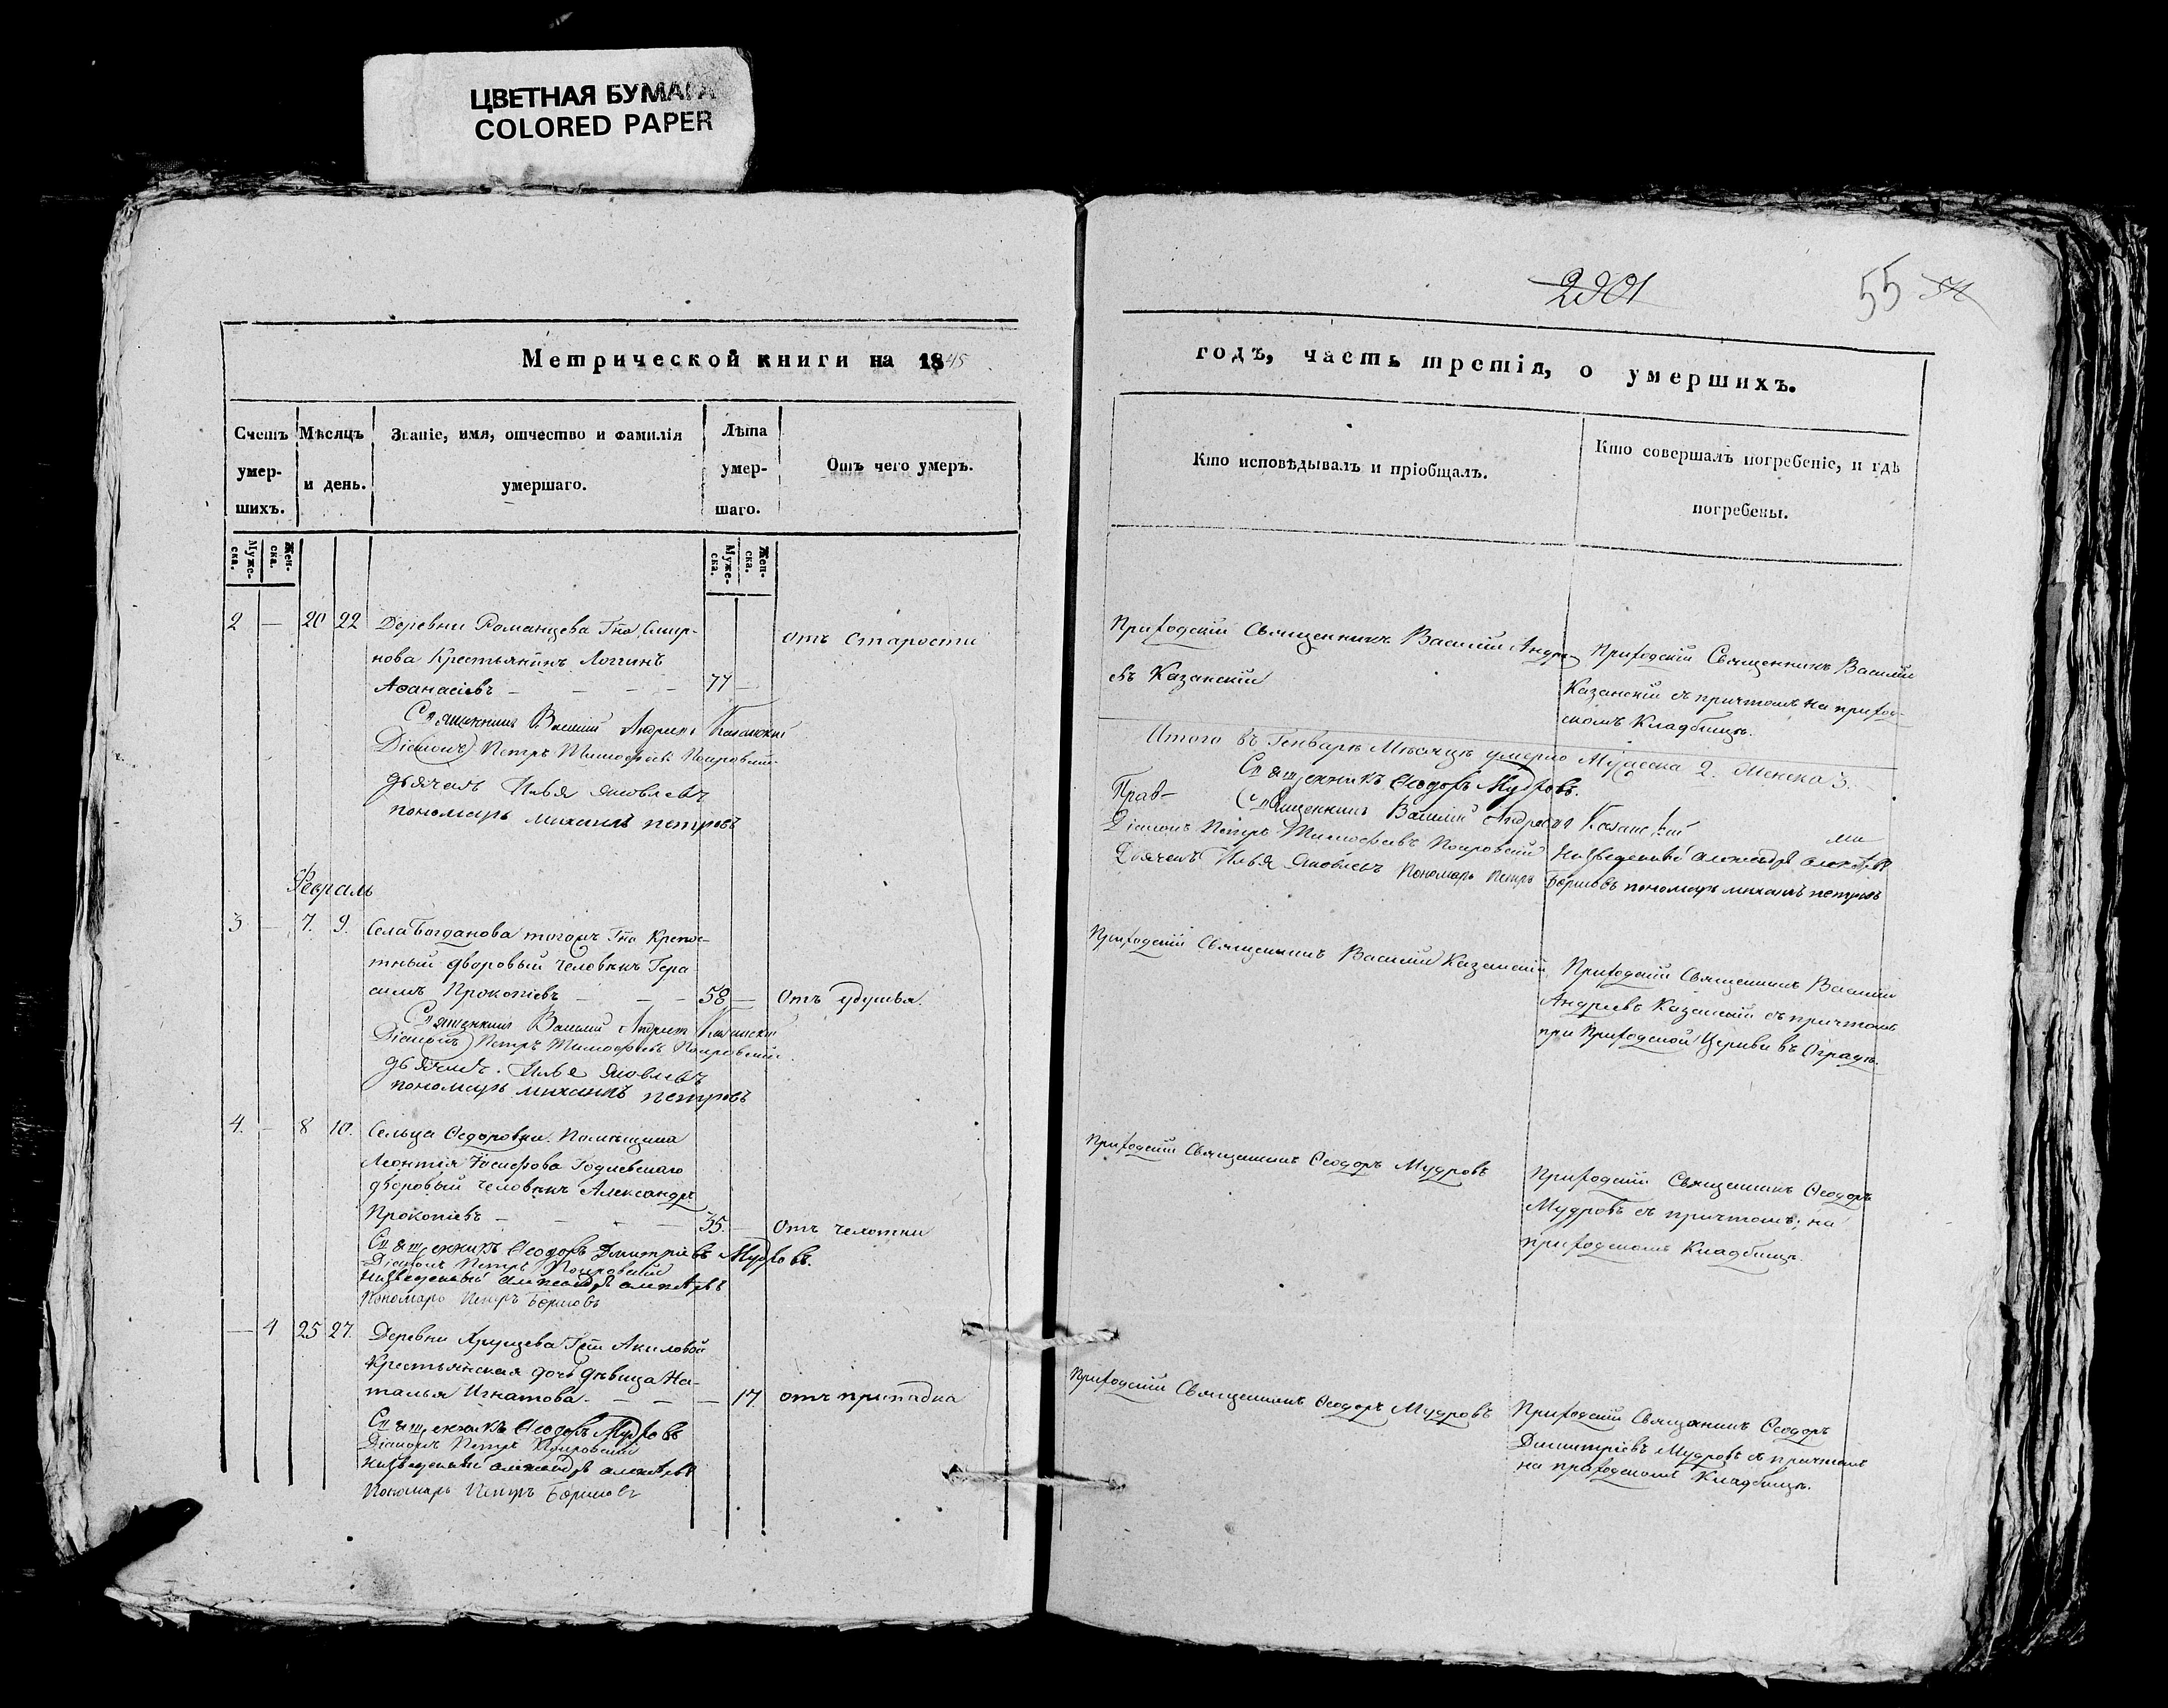 ЦВЕТНАЯ БУМАГА
COLORED PAPER
Метрической книги на 1845
Счетъ умер-шихъ.
Мѣсяцъ и день.
Званіе, имя, отчество и фамилія умершаго.
Лѣта умер-шаго.
Отъ чего умеръ.
Муже-ска. Жен-ска.
Муже-ска. Жен-ска.
2 — 20 22 Деревни Романцева Гна Смир-
нова Крестьянинъ Логгинъ
Аѳанасіевъ — 77 — отъ старости
Священникъ Василій Андреевъ Казанскій
Діаконъ Петръ Тимофеевъ Покровскій
дьячекъ Илья Яковлевъ
пономарь михаилъ петровъ
Февраль
3 — 7. 9. Села Богданова тогожъ Гна Крепос-
тный дворовый человѣкъ Гера
симъ Прокопіевъ — 58 — Отъ удушья.
Священникъ Василій Андреевъ Казанскій
Діаконъ Петръ Тимофеевъ Покровскій
дьячекъ. Илья Яковлевъ
пономарь михаилъ петровъ
4. — 8 10. Сельца Ѳедоровки. Помѣщика
Леонтія
дворовый человѣкъ Александръ
Прокопіевъ — 35. — Отъ чехотки
Священникъ Ѳеодоръ Дмитріевъ Мудровъ.
Діаконъ Петръ Покровскій
Пономарь Петръ Борисовъ
— 4 25 27. Деревни Хрущева Гжи Акиловой
Крестьянская дочь дѣвица На-
талья Игнатова. — 17 отъ припадка
Священникъ Ѳеодоръ Мудровъ
Діаконъ Петръ Покровскій
Пономарь Петръ Борисовъ
2901
55 54
годъ, часть третія, о умершихъ.
Кто исповѣдывалъ и пріобщалъ.
Кто совершалъ погребеніе, и гдѣ погребены.
Приходскій Священникъ Василій Андре-
евъ Казанскій
Приходскій Священникъ Василій
Казанскій съ причтомъ на приход-
скомъ Кладбищѣ.
Итого въ Генварѣ Мѣсяцѣ умерло Мужеска 2. Женска 3.
Священникъ Ѳеодоръ Мудровъ.
Священникъ Василій Андреевъ Казанскій
Діаконъ Петръ Тимофеевъ Покровскій
Дьячекъ Илья Яковлевъ Пономарь Петръ Борисовъ пономарь михаилъ петровъ
Приходскій Священникъ Василій Казанскій
Приходскій Священникъ Василій
Андреевъ Казанскій съ причтомъ
при Приходской Церкви въ Оградѣ.
Приходскій Священникъ Ѳеодоръ Мудровъ
Приходскій Священникъ Ѳеодоръ
Мудровъ съ причтомъ; на
приходскомъ Кладбищѣ.
Приходскій Священникъ Ѳеодоръ Мудровъ
Приходскій Священникъ Ѳеодоръ
Дмитріевъ Мудровъ съ причтомъ
на приходскомъ Кладбищѣ.